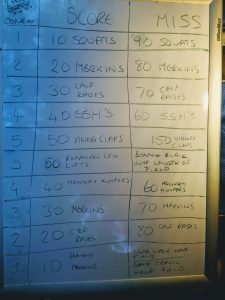 CONES SCORE MISS
1 10 SQUATS 90 SQUATS
2 20 MERKINS 80 MERKINS
3 30 CALF RAISES 70 CALF RAISES
4 40 SSH'S 60 SSH'S
5 50 VIKING CLAPS 150 VIKING CLAPS
5 50 LEG LIFTS BONNIE BLAIR LENGTH OF FIELD
4 40 HUMPERS 60 HUMPERS
3 30 MERKINS 70 MERKINS
2 20 CALF RAISES 80 CALF RAISES
1 10 MERKINS HALF FIELD
CRAWL HALF FIELD